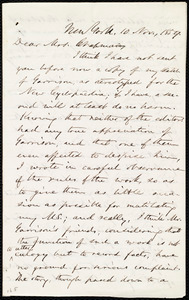 New York. 10 Nov., 1859.
Dear Mrs. Chapman,
I think I have not sent
you before now a copy of my sketch
of Garrison, as stereotyped for the
New Cyclopædia; if I have a sec-
ond will at least do no harm.
Knowing that neither of the editors
had any true appreciation of
Garrison, and that at least
one affected to despise him,
I wrote in careful observance
of the rules of the work, so as
to give them as little occa-
sion as possible for mutilating
my MS.; and really, I think Mr.
Garrison's friends, considering that
the function of such a work is not
eulogy but to record facts, have
no ground for serious complaint.
The story, though pared down to a